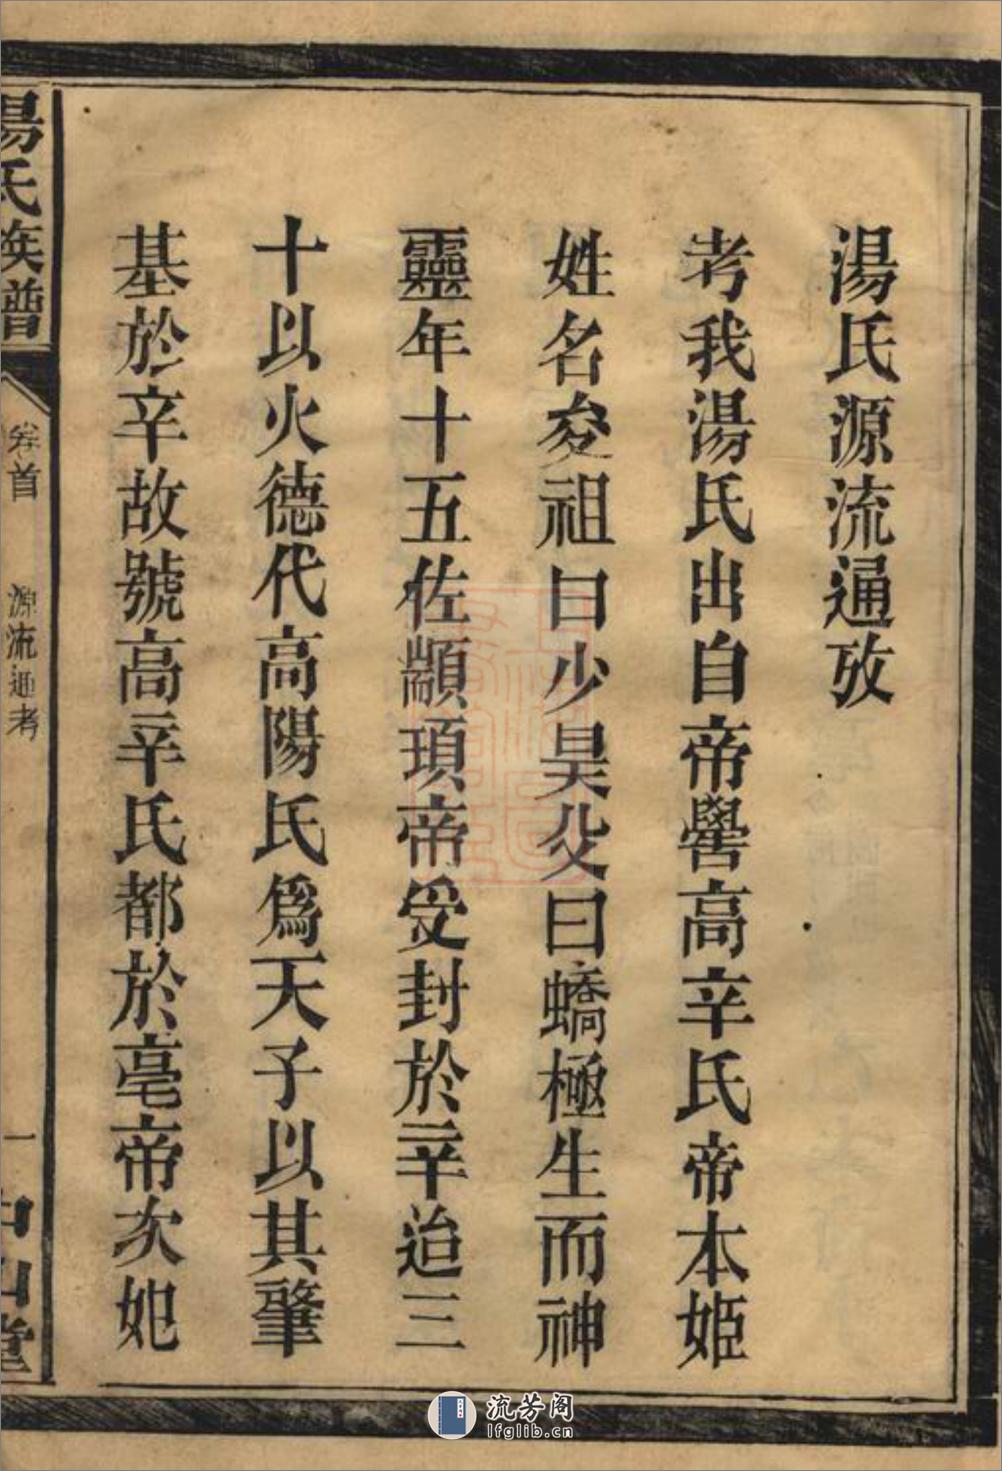 湯氏源流通攷
考我湯氏出自帝嚳高辛氏帝本姬
姓名夋祖曰少昊父曰蟜極生而神
靈年十五佐顓頊帝受封於辛迨三
十以火德代高陽氏為天子以其肇
基於辛故號高辛氏都於亳帝次妃
湯氏族譜
卷首
源流通考
一
中山堂
流芳阁
lfglib.cn